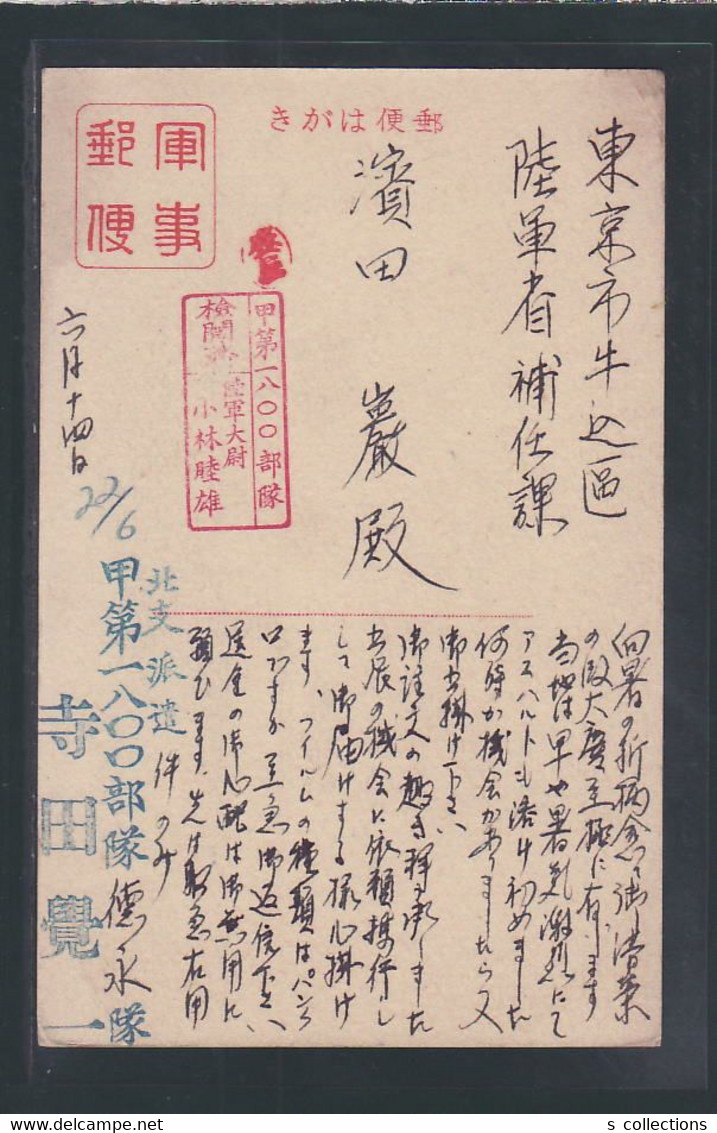 郵便はがき
軍事
郵便
東京市牛込區
陸軍省補任課
濱田 巖殿
甲第一八〇〇部隊
檢閲濟 陸軍大尉
小林睦雄
向暑の折柄愈々御清榮
の段大慶至極に存じます
当地は早や暑気激烈にて
アスハルトも溶け初めました
何時か機会がありましたら又
御出掛け下さい
御註文の趣き拝承しました
出辰の機会に依頼携行し
して御届けする様心掛け
ます、フイルムの種類はパンクロ
ロですか 至急御返信下さい
送金の御心配は御無用に
願ひます、先は取急右用
件のみ
六月十四日
22/6
北支派遣
甲第一八〇〇部隊德永隊
寺田覺一
s collections